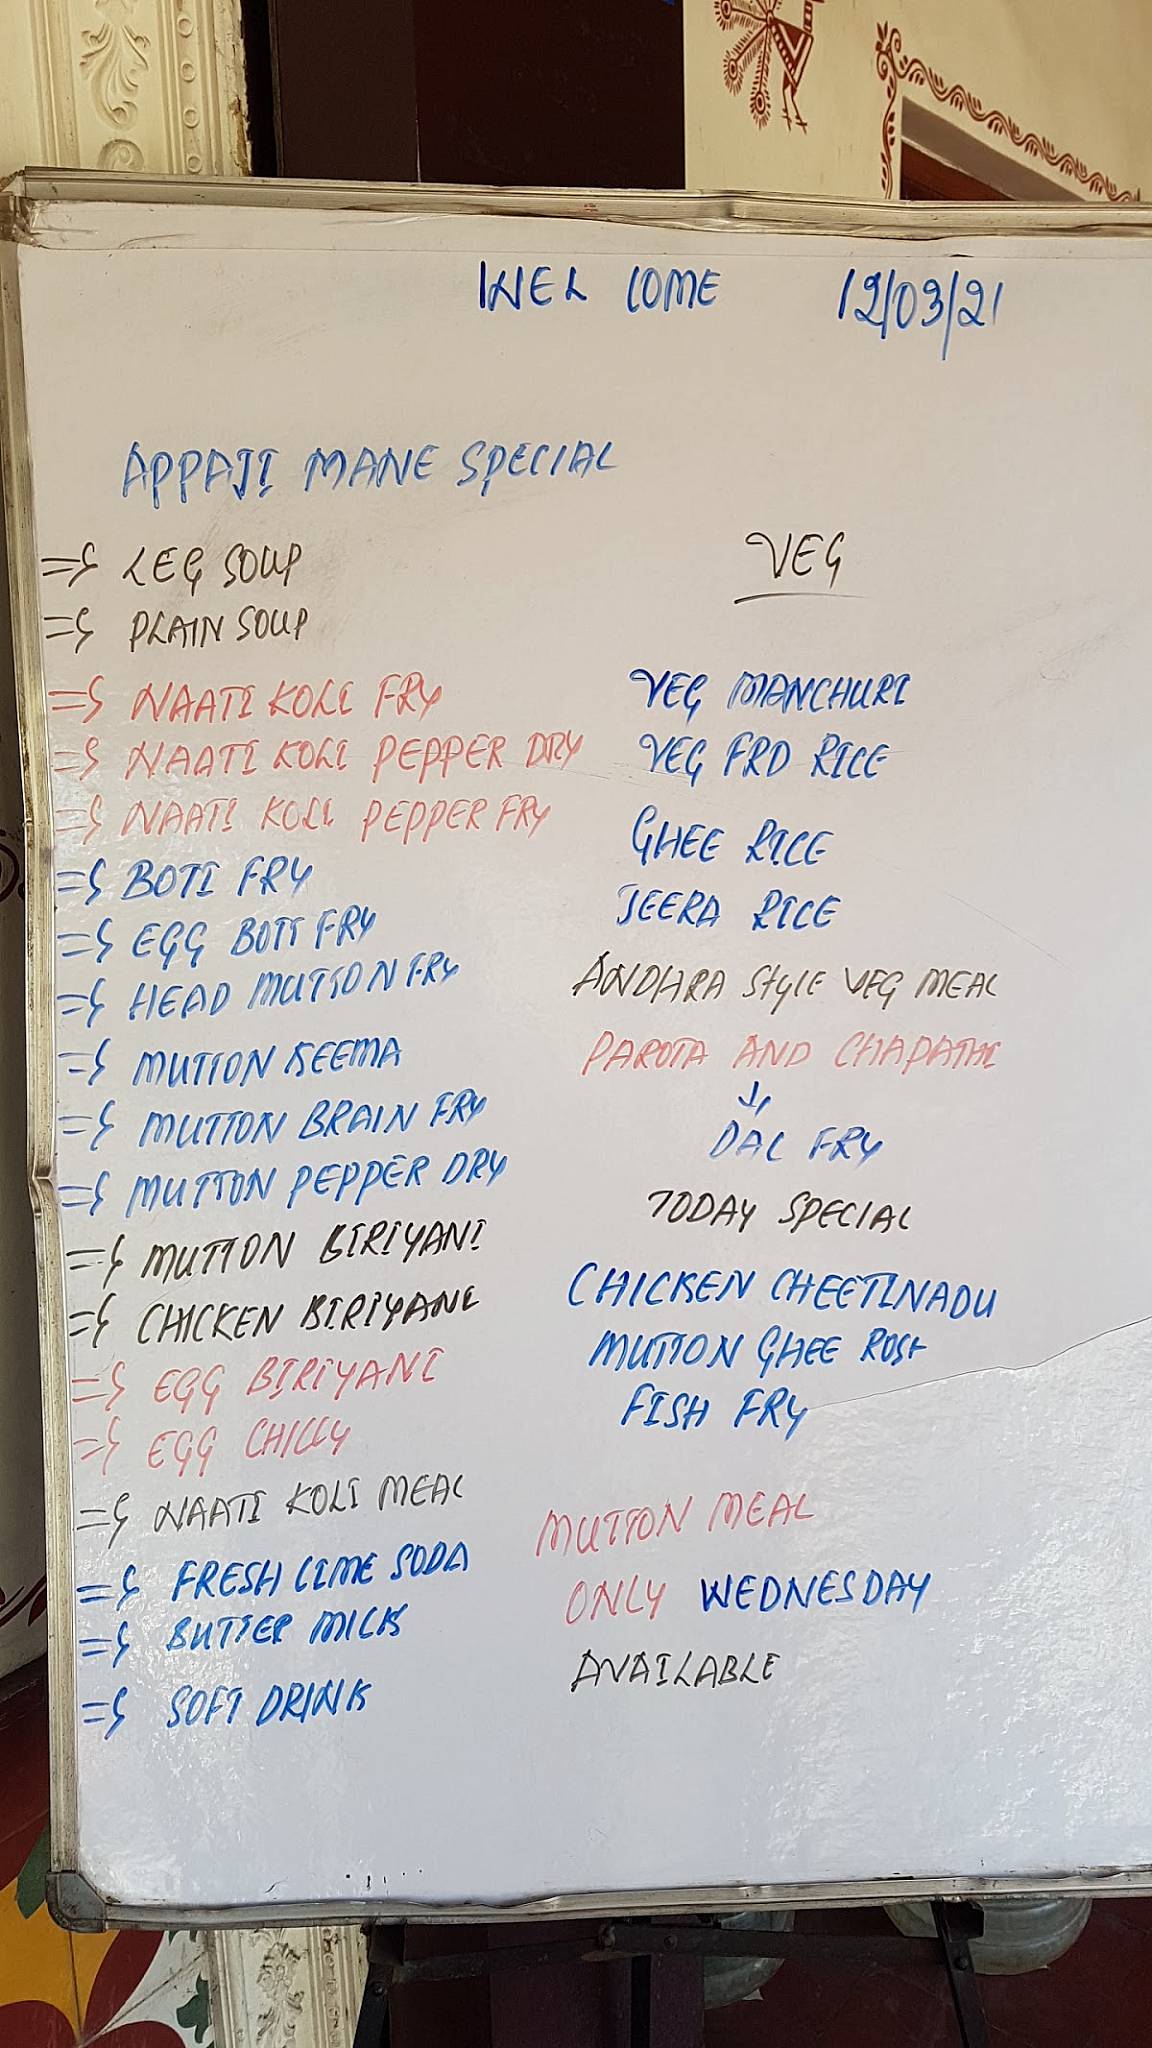 WEL COME 12/03/21
APPAJI MANE SPECIAL
=> LEG SOUP
=> PLAIN SOUP
=> NAATI KOLI FRY
=> NAATI KOLI PEPPER DRY
=> NAATI KOLI PEPPER FRY
=> BOTI FRY
=> EGG BOTI FRY
=> HEAD MUTTON FRY
=> MUTTON KEEMA
=> MUTTON BRAIN FRY
=> MUTTON PEPPER DRY
=> MUTTON BIRIYANI
=> CHICKEN BIRIYANI
=> EGG BIRIYANI
=> EGG CHILLY
=> NAATI KOLI MEAL
=> FRESH LIME SODA
=> BUTTER MILK
=> SOFT DRINK
VEG
VEG MANCHURI
VEG FRD RICE
GHEE RICE
JEERA RICE
ANDHRA STYLE VEG MEAL
PAROTA AND CHAPATHI
↓
DAL FRY
TODAY SPECIAL
CHICKEN CHEETINADU
MUTTON GHEE ROST
FISH FRY
MUTTON MEAL
ONLY WEDNESDAY
AVAILABLE